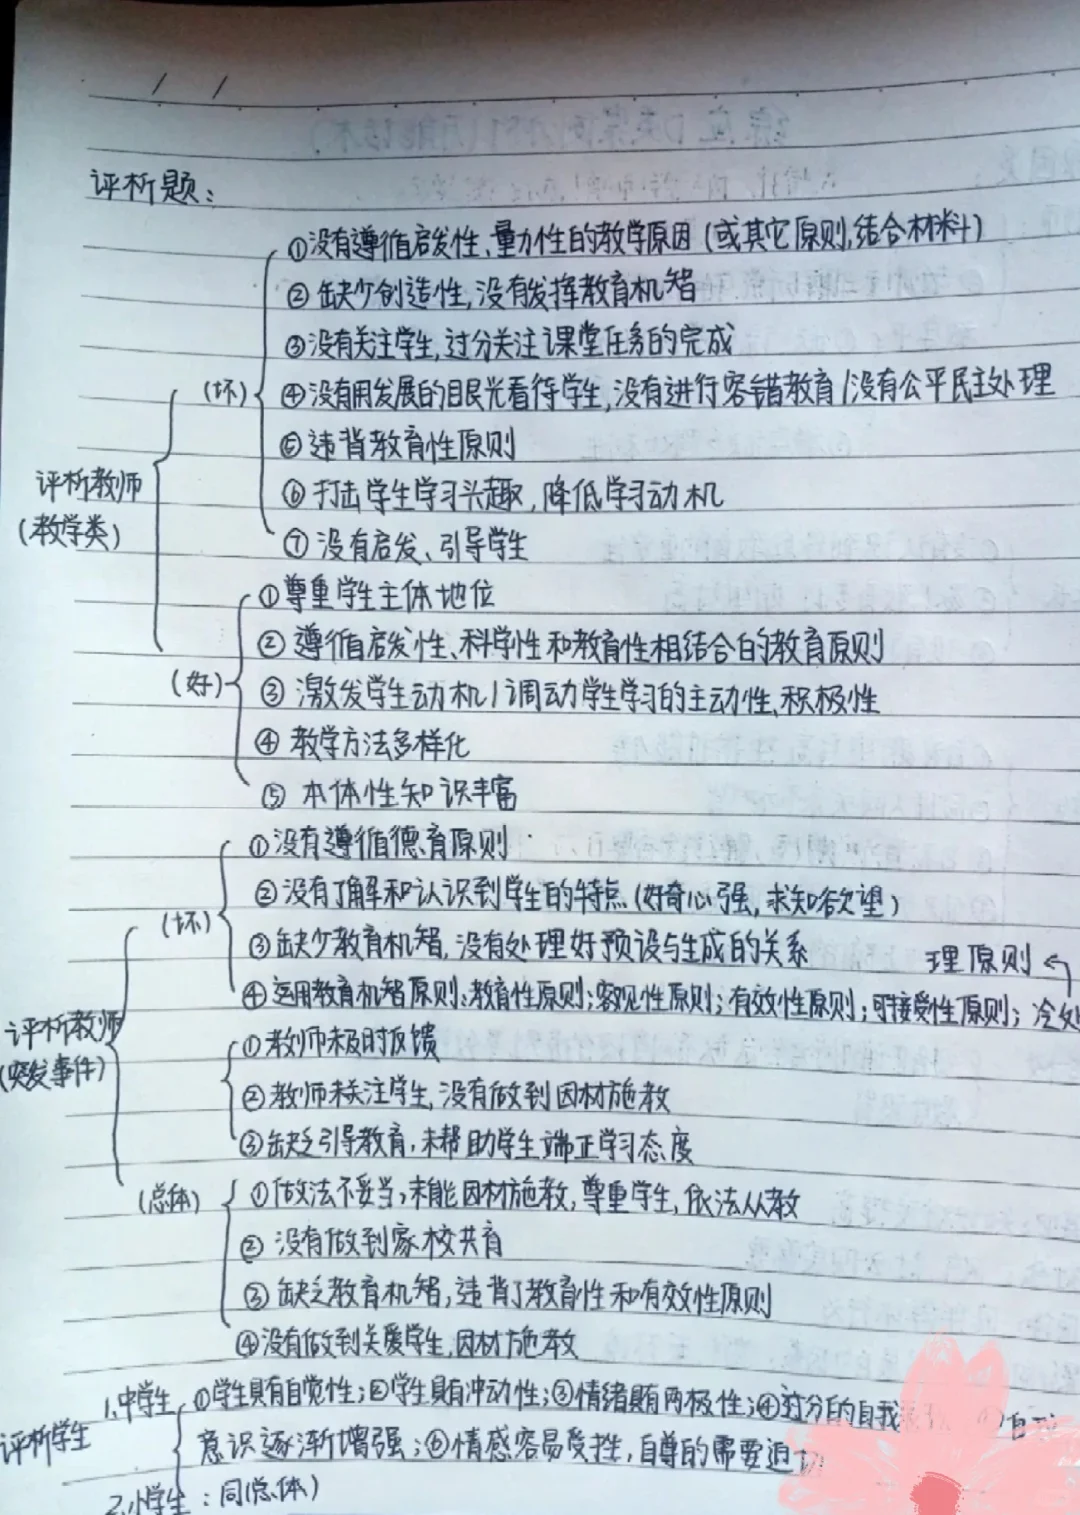 评析题：
①没有遵循启发性、量力性的教学原因（或其它原则，结合材料）
②缺少创造性，没有发挥教育机智
③没有关注学生，过分关注课堂任务的完成
（坏）④没有用发展的眼光看待学生，没有进行容错教育/没有公平民主处理
⑤违背教育性原则
评析教师
（教学类）
⑥打击学生学习兴趣，降低学习动机
⑦没有启发、引导学生
①尊重学生主体地位
②遵循启发性、科学性和教育性相结合的教育原则
（好）③激发学生动机/调动学生学习的主动性，积极性
④教学方法多样化
⑤本体性知识丰富
①没有遵循德育原则
②没有了解和认识到学生的特点（好奇心强，求知欲望）
（坏）
③缺少教育机智，没有处理好预设与生成的关系
理原则
④运用教育机智原则：教育性原则；客观性原则；有效性原则；可接受性原则；冷处
评析教师
（突发事件）
①教师未及时反馈
②教师未关注学生，没有做到因材施教
③缺乏引导教育，未帮助学生端正学习态度
（总体）①做法不妥当，未能因材施教，尊重学生，依法从教
②没有做到家校共育
③缺乏教育机智，违背了教育性和有效性原则
④没有做到关爱学生，因材施教
评析学生
1.中学生①学生具有自觉性；②学生具有冲动性；③情绪具有两极性；④过分的自我
意识逐渐增强；⑥情感容易受挫，自尊的需要迫
2.小学生：同（总体）